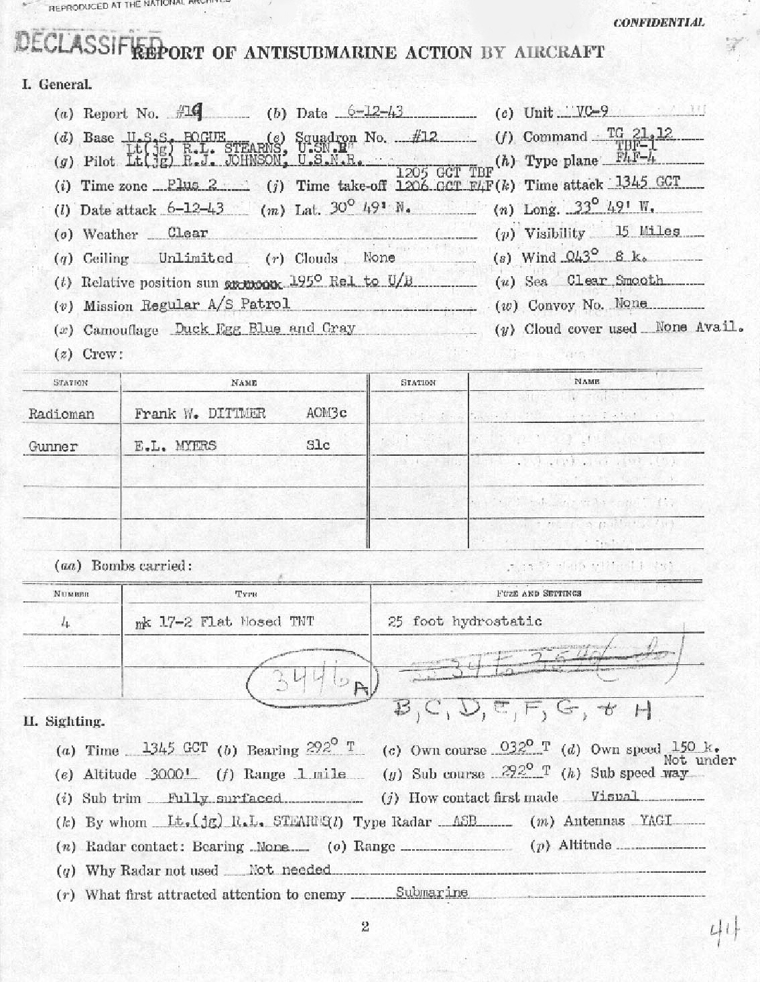 REPRODUCED AT THE NATIONAL ARCHIVES
CONFIDENTIAL
DECLASSIFIED
REPORT OF ANTISUBMARINE ACTION BY AIRCRAFT
I. General.
(a) Report No. #19 (b) Date 6-12-43 (c) Unit VC-9
(d) Base U.S.S. BOGUE (e) Squadron No. #12 (f) Command TG 21.12
Lt(jg) R.L. STEARNS, U.S.N.R TBF-1
(g) Pilot Lt(jg) R.J. JOHNSON, U.S.N.R. (h) Type plane F4F-4
1205 GCT TBF
(i) Time zone Plus 2 (j) Time take-off 1206 GCT F4F (k) Time attack 1345 GCT
(l) Date attack 6-12-43 (m) Lat. 30° 49' N. (n) Long. 33° 49' W.
(o) Weather Clear (p) Visibility 15 Miles
(q) Ceiling Unlimited (r) Clouds None (s) Wind 043° 8 k.
(t) Relative position sun 195° Rel to U/B (u) Sea Clear Smooth
(v) Mission Regular A/S Patrol (w) Convoy No. None
(x) Camouflage Duck Egg Blue and Gray (y) Cloud cover used None Avail.
(z) Crew:
STATION NAME STATION NAME
Radioman Frank W. DITTMER AOM3c
Gunner E.L. MYERS S1c
(aa) Bombs carried:
NUMBER TYPE FUZE AND SETTINGS
4 mk 17-2 Flat Nosed TNT 25 foot hydrostatic
3446 A
B, C, D, E, F, G, & H
II. Sighting.
(a) Time 1345 GCT (b) Bearing 292° T (c) Own course 032° T (d) Own speed 150 k.
Not under
(e) Altitude 3000' (f) Range 1 mile (g) Sub course 292° T (h) Sub speed way
(i) Sub trim Fully surfaced (j) How contact first made Visual
(k) By whom Lt.(jg) R.L. STEARNS (l) Type Radar ASB (m) Antennas YAGI
(n) Radar contact: Bearing None (o) Range (p) Altitude
(q) Why Radar not used Not needed
(r) What first attracted attention to enemy Submarine
2